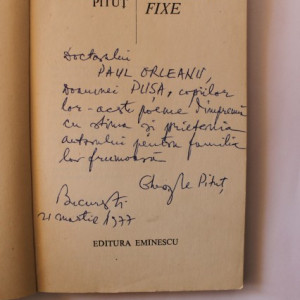 PITUȚ
FIXE
Doctorului
PAUL ORLEANU,
Doamnei PUȘA, copiilor
lor - aceste poeme dimpreună
cu stima și prietenia
autorului pentru familia
lor frumoasă
Gheorghe Pituț,
București
21 martie 1977
EDITURA EMINESCU